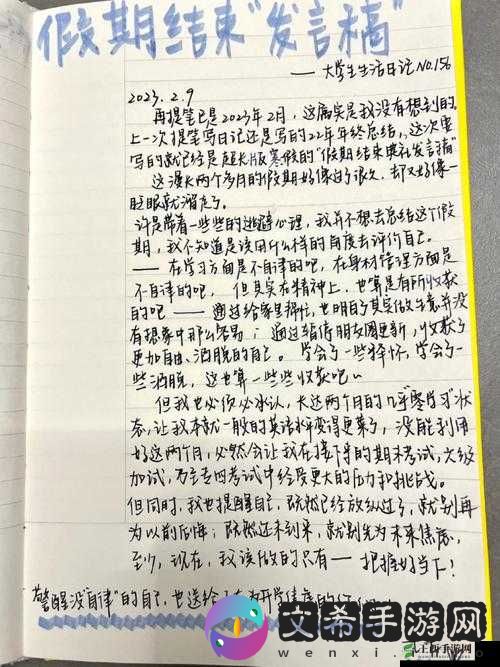 假期结束"发言稿"
——大学生生活日记No.156
2023.2.9
再提笔已是2023年2月，这属实是我没有想到的
上一次提笔写日记还是写的22年年终总结，这次要
写的就已经是超长版寒假的"假期结束典礼发言稿"
这漫长两个多月的假期好像过了很久，却又好像一
眨眼就溜走了。
许是带着一些些的逃避心理，我并不想去总结这个假
期，我不知道是该用什么样的角度去评价自己。
——在学习方面是不自律的吧，在身材管理方面是
不自律的吧，但其实在精神上，也算是有所收获
的吧——通过给家里帮忙，也明白了其实做生意并没
有想象中那么容易；通过暂停朋友圈更新，收获了
更加自由、洒脱的自己。学会了一些释怀，学会了一
些洒脱，这也算一些些收获吧~
但我也必须必承认，长达两个月的几乎"零学习"状
态，让我本就一般的英语水平变得更菜了，没能利用
好这两个月，必然会让我在接下来的期末考试，六级
加试，乃至专四考试中经受更大的压力和挑战。
但同时，我也提醒自己，既然已经放纵过了，就别再
为以前后悔；既然还未到来，就别先为未来焦虑。
至少，现在，我该做的只有——把握好当下！
警醒没"自律"的自己，也送给正在为开学焦虑的
文希手游网
wenxi.com.tw